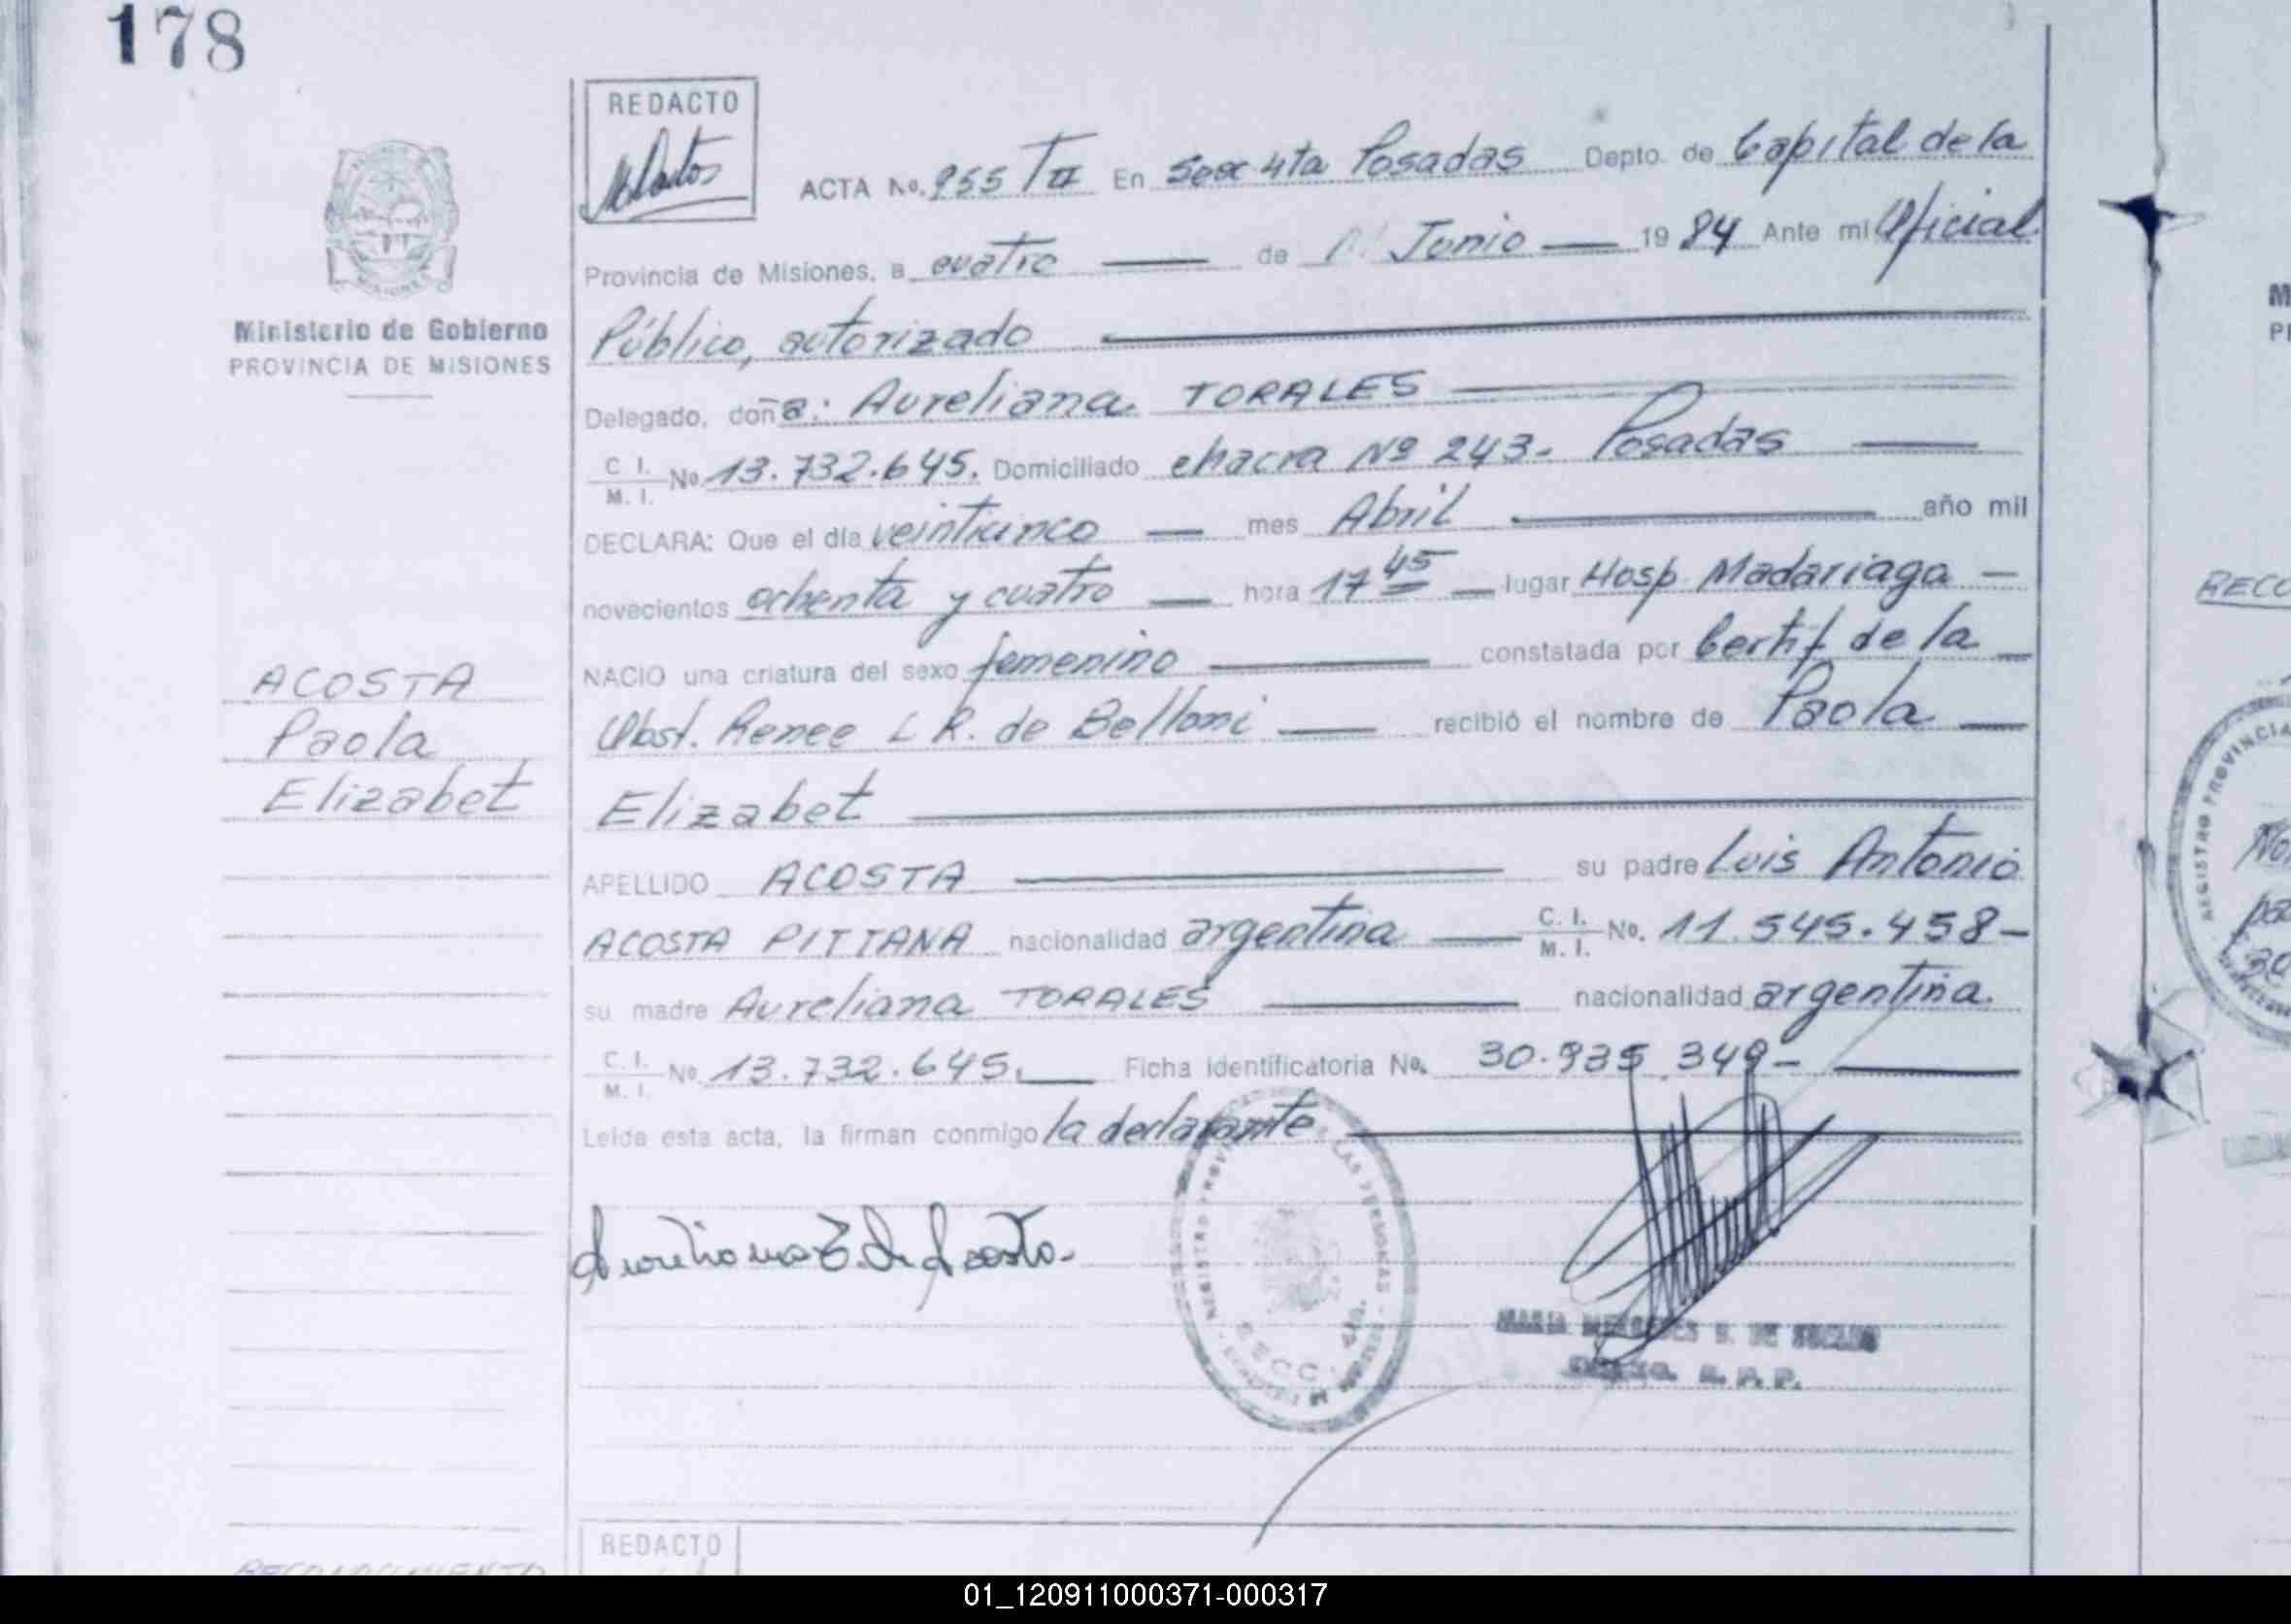 178
REDACTO
ACTA No. 955 TII En Secc 4ta Posadas Depto. de Capital de la
Provincia de Misiones, a cuatro de Junio 1984 Ante mi Oficial
Público, autorizado
Delegado, doña: Aureliana TORALES
C. I. / M. I. No. 13.732.645. Domiciliado chacra Nº 243- Posadas
DECLARA: Que el día veinticinco mes Abril año mil
novecientos ochenta y cuatro hora 17 45 lugar Hosp. Madariaga
NACIO una criatura del sexo femenino constatada por Certif de la
Obst. Renee L R. de Belloni recibió el nombre de Paola
Elizabet
APELLIDO ACOSTA su padre Luis Antonio
ACOSTA PITTANA nacionalidad argentina C. I. / M. I. No. 11.545.458-
su madre Aureliana TORALES nacionalidad argentina.
C. I. / M. I. No. 13.732.645. Ficha Identificatoria No. 30.935.349-
Leída esta acta, la firman conmigo la declarante
Ministerio de Gobierno
PROVINCIA DE MISIONES
ACOSTA
Paola
Elizabet
REDACTO
RECONOCIMIENTO
01_120911000371-000317